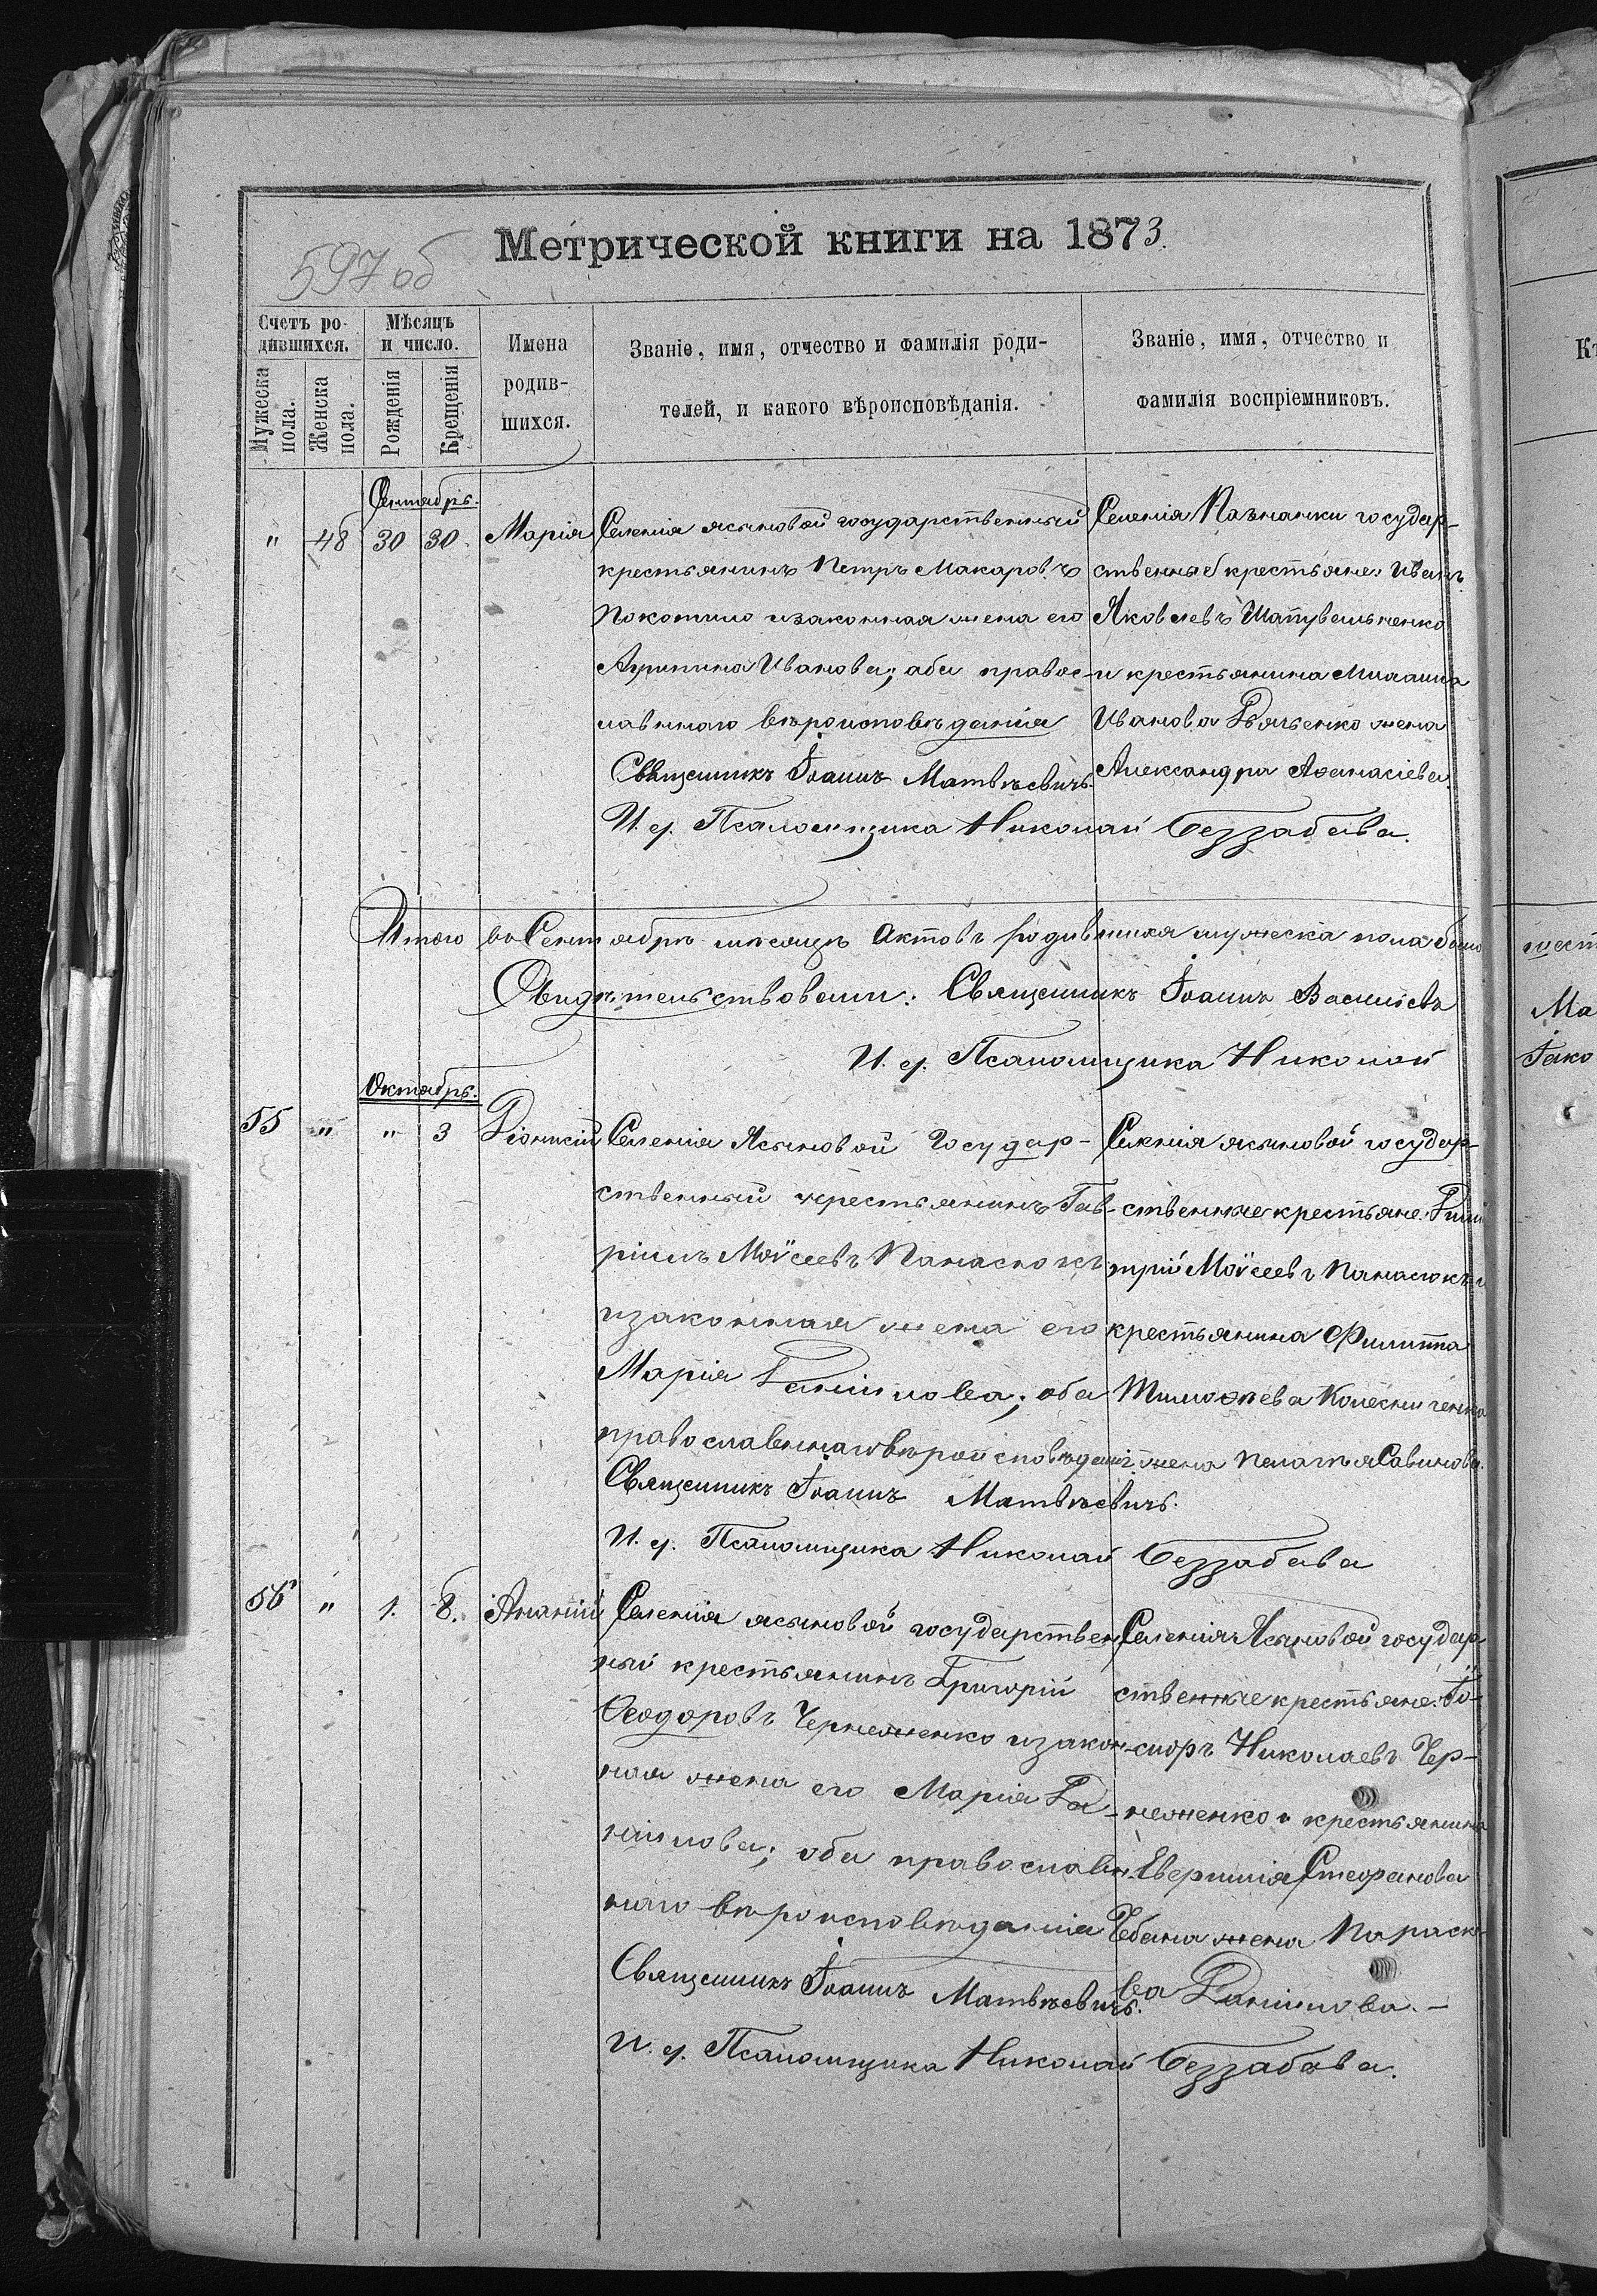 Метрической книги на 1873.
597 об
Счетъ ро-
дившихся.
Мужеска пола.
Женска пола.
Мѣсяцъ
и число.
Рожденія
Крещенія
Имена
родив-
шихся.
Званіе, имя, отчество и фамилія роди-
телей, и какого вѣроисповѣданія.
Званіе, имя, отчество и
фамилія воспріемниковъ.
Сентябрь.
" 48 30 30. Марія
Селенія Ясыновой государственный
крестьянинъ Петръ Макаровъ
Покотило изаконная жена его
Агрипина Иванова; оба правос-
лавнаго вѣроисповѣданія
Священникъ Іоаннъ Матвѣевичъ.
И. д. Псаломщика Николай Беззабава.
Селенія Пазнанки государ-
ственные крестьяне: Иванъ
Яковлевъ
и крестьянина Михаила
Иванова Дьяченко жена
Александра Аѳанасіева.
Итого въ Сентябрѣ мѣсяцѣ Актовъ родившихся мужеска пола было
Свидѣтельствовали: Священникъ Іоаннъ Василіевъ
И. д. Псаломщика Николай
Октябрь.
55 " " 3 Діонисій
Селенія Ясыновой Государ-
ственный крестьянинъ Гав-
ріилъ Моѵсеевъ Панасюкъ
изаконная жена его
Марія Даніилова; оба
православнаго вѣроисповѣданія.
Священникъ Іоаннъ Матвѣевичъ.
И. д. Псаломщика Николай Беззабава
Селенія Ясыновой государ-
ственные крестьяне: Дими
трій Моѵсеевъ Панасюкъ и
крестьянина Филиппа
Тимоѳеева Колесниченка
жена Пелагія Савинова.
56 " 1. 8. Ананій
Селенія Ясыновой государствен
ный крестьянинъ Григорій
Ѳеодоровъ Черноженко изакон-
ная жена его Марія Да-
ніилова; оба православ-
наго вѣроисповѣданія
Священникъ Іоаннъ Матвѣевичъ.
И. д. Псаломщика Николай Беззабава.
Селенія Ясыновой государ-
ственные крестьяне:
Николаевъ Чер-
ноженко и крестьянина
Стефанова
Чебана жена Параске-
ва Даніилова.-
Ма
Іако